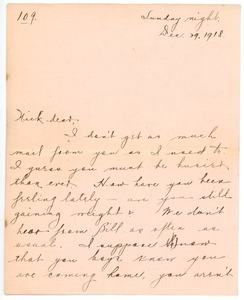 109.
Sunday night,
Dec. 29, 1918.
Kick dear:
I don't get as much
mail from you as I used to
I guess you must be busier
than ever. How have you been
feeling lately - are you still
gaining weight? We don't
hear from Bill as often as
usual. I suppose now
that you boys know you
are coming home, you aren't